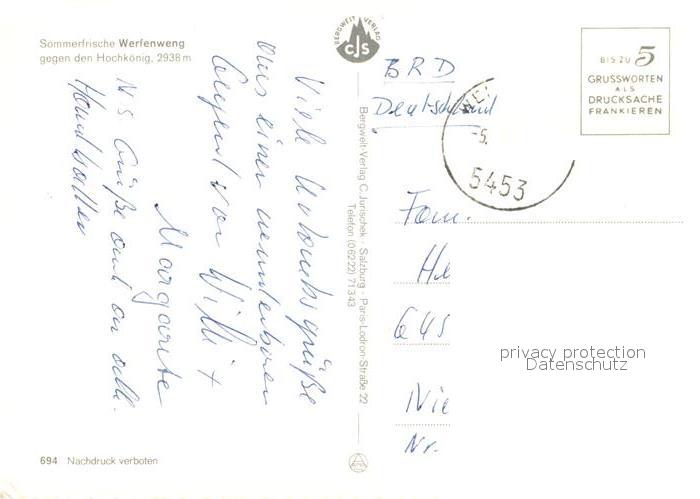 Sommerfrische Werfenweng
gegen den Hochkönig, 2938 m
Viele Urlaubsgrüße
aus einer wunderbaren
Gegend von Willi +
Margarete
NS Grüße auch an alle
694 Nachdruck verboten
BERGWELT VERLAG
CJS
Bergwelt-Verlag C. Jurischek · Salzburg · Paris-Lodron-Straße 22
Telefon (0 62 22) 71 3 43
BIS ZU 5
GRUSSWORTEN
ALS
DRUCKSACHE
FRANKIEREN
BRD
Deutschland
WE
-5.
5453
Fam.
He
Gus
Nie
Nr.
privacy protection
Datenschutz